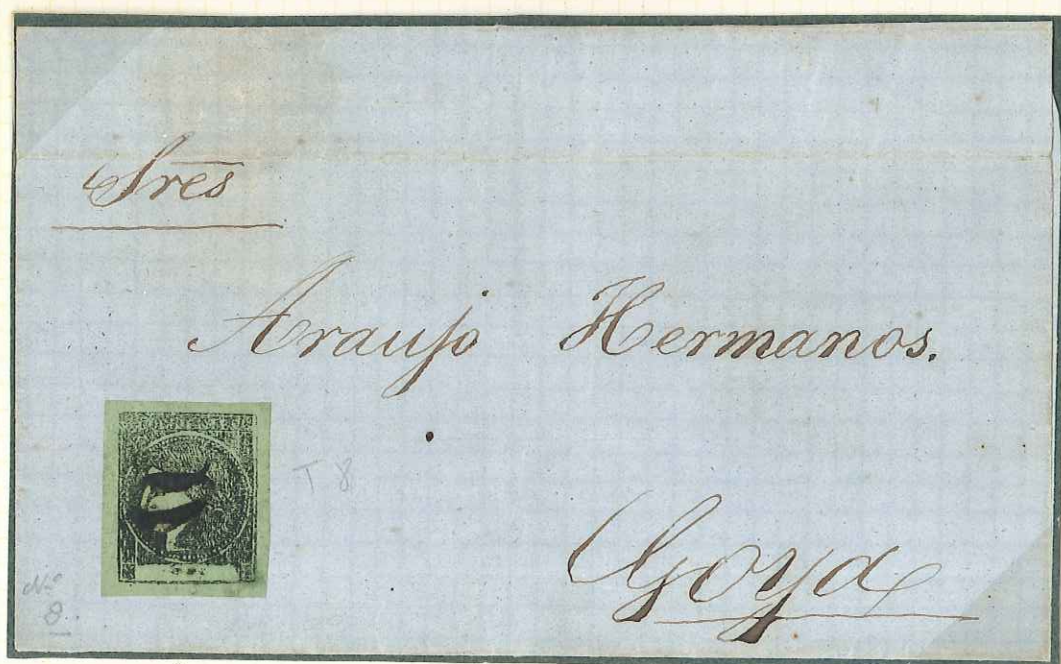 Sres
Araujo Hermanos.
T 8
Goya
No
8